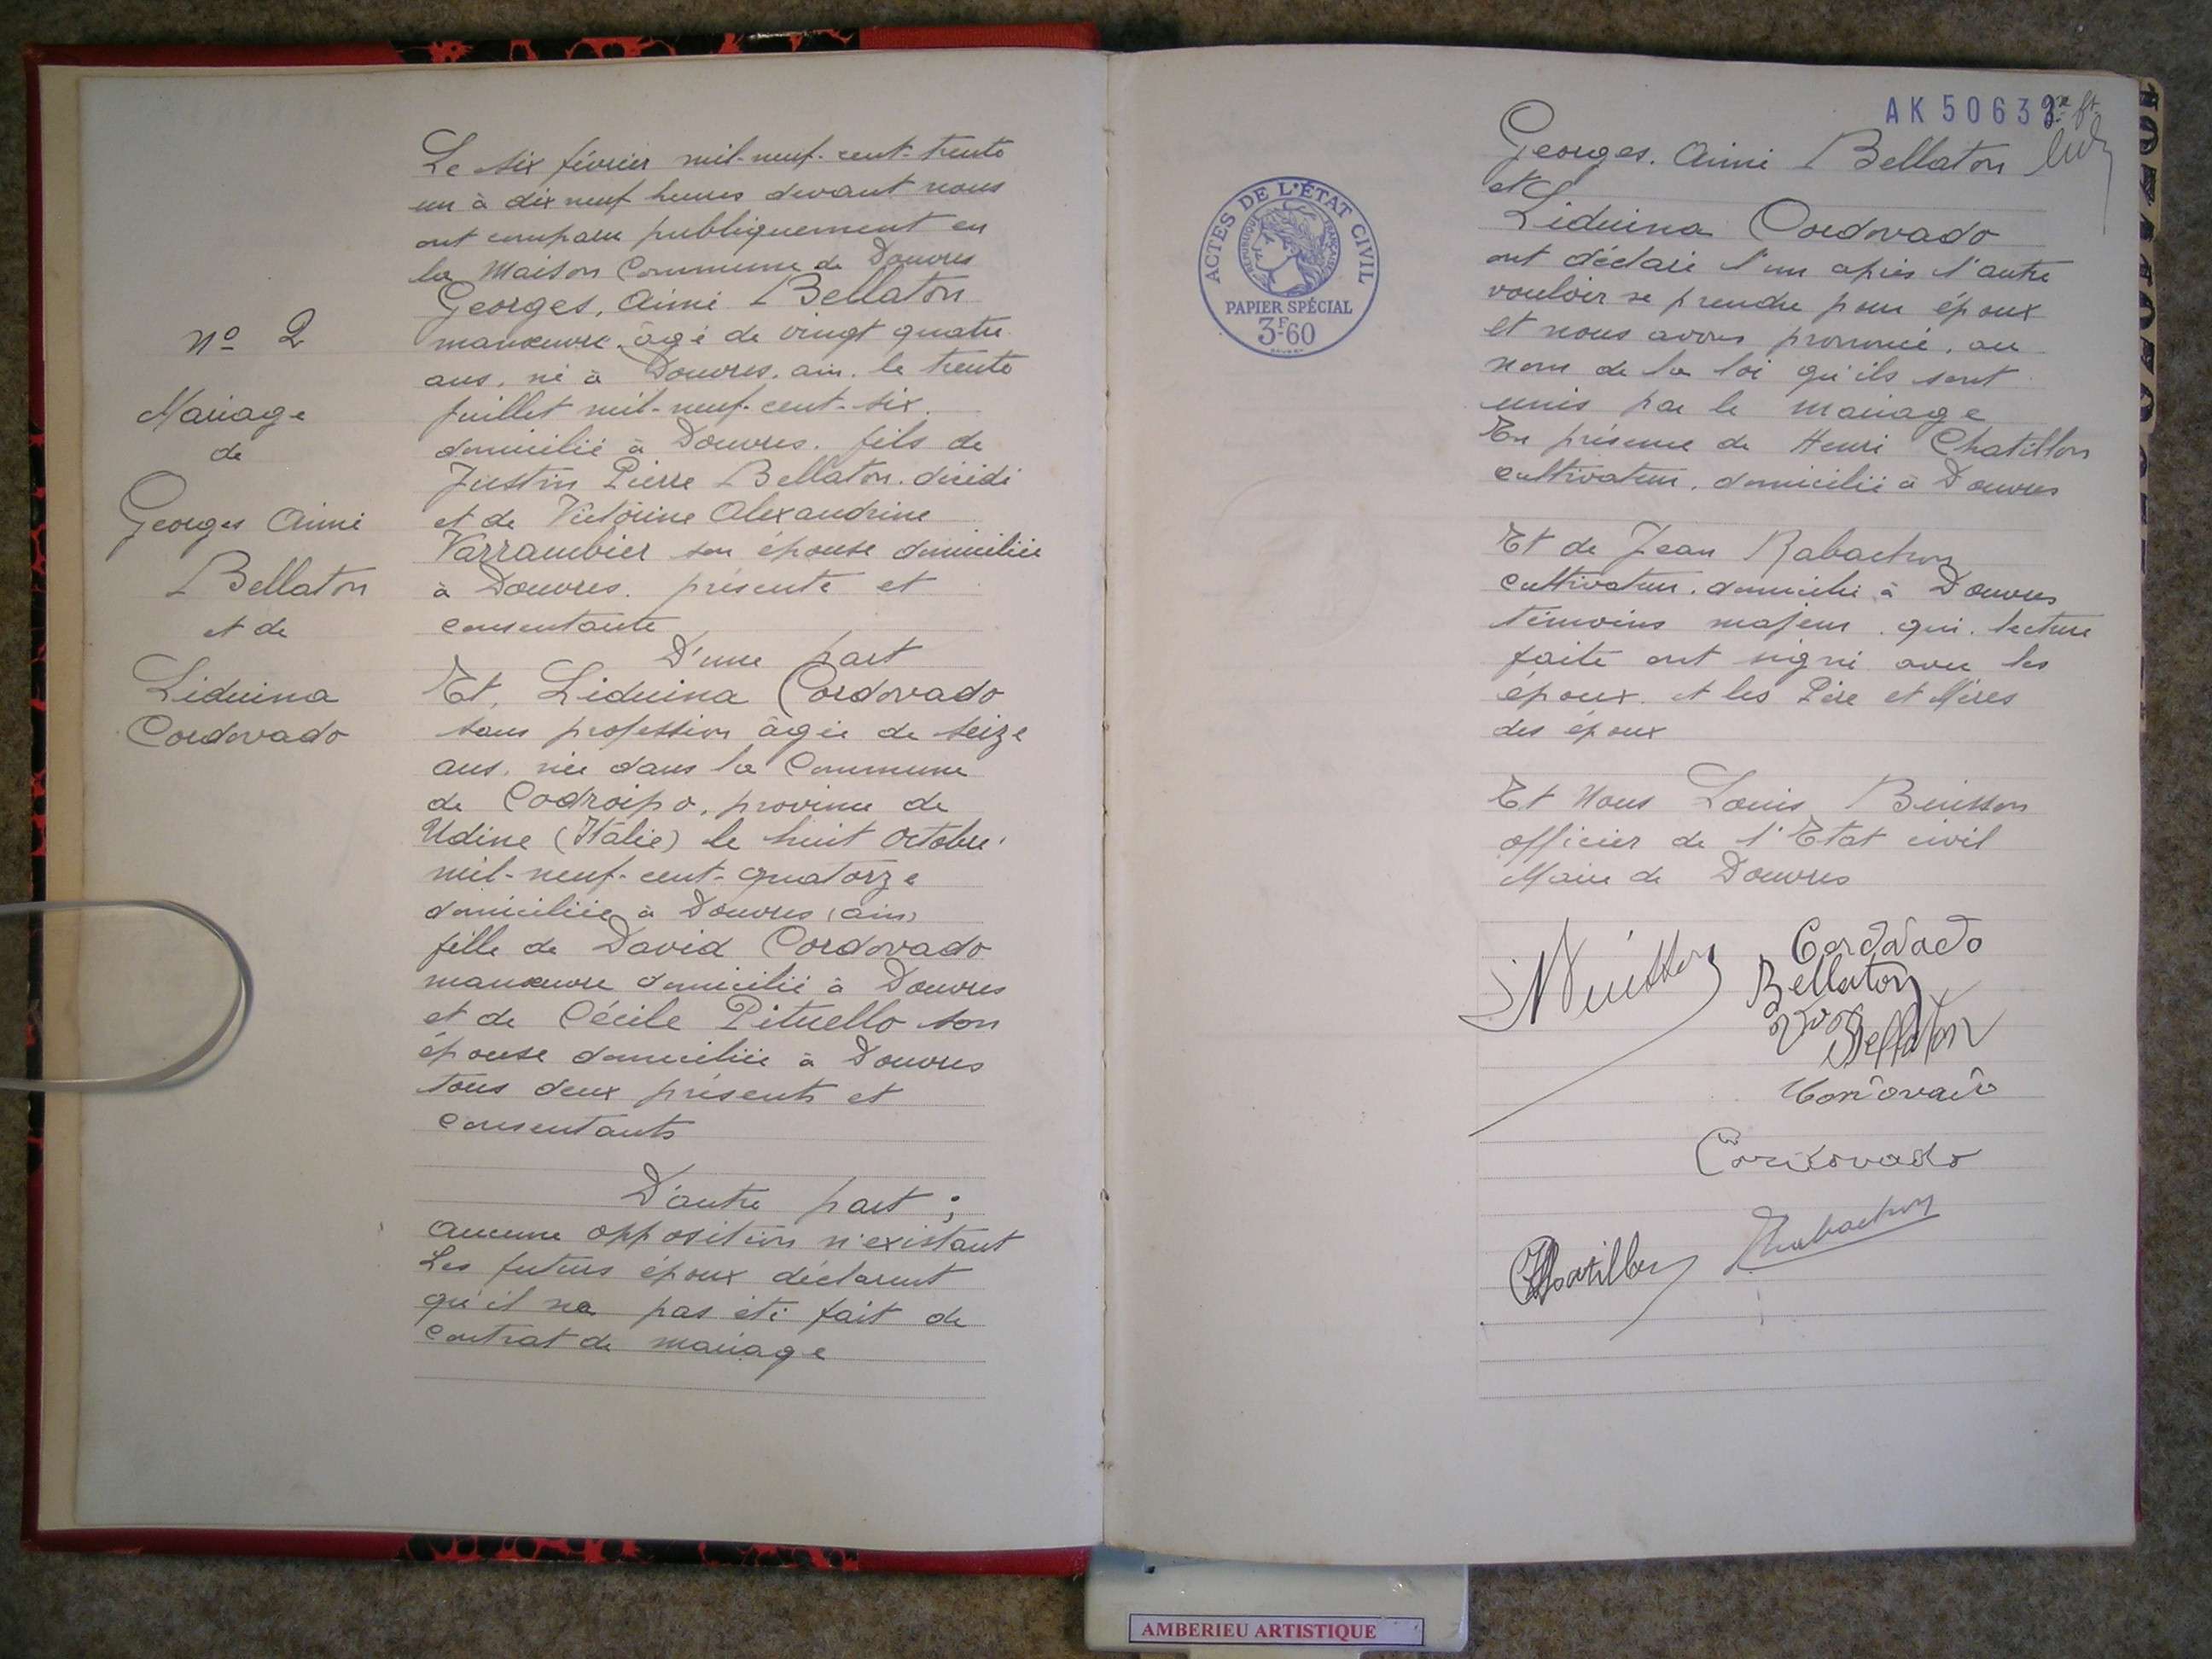 Le six février mil-neuf-cent-trente
un à dix neuf heures devant nous
ont comparu publiquement en
la Maison Commune de Douvres
Georges, Aimé Bellaton
manœuvre, âgé de vingt quatre
ans, né à Douvres, ain, le trente
Juillet mil-neuf-cent-six.
domicilié à Douvres. fils de
Justin Pierre Bellaton. décidé
et de Victorine Alexandrine
Varrambier son épouse domiciliée
à Douvres. présente et
consentante
D'une part
Et, Liduina Cordovado
sans profession âgée de seize
ans, née dans la Commune
de Codroipo, province de
Udine (Italie) le huit Octobre
mil-neuf-cent-quatorze
domiciliée à Douvres (ain)
fille de David Cordovado
manœuvre domicilié à Douvres
et de Cécile Pituello son
épouse domiciliée à Douvres
tous deux présents et
consentants
D'autre part ;
aucune opposition n'existant
Les futurs époux déclarent
qu'il na pas été fait de
contrat de mariage
nº 2
Mariage
de
Georges Aimé
Bellaton
et de
Liduina
Cordovado
AK 5063
ACTES DE L'ÉTAT CIVIL
RÉPUBLIQUE FRANÇAISE
PAPIER SPÉCIAL
3F60
Georges. Aimé Bellaton
et
Liduina Cordovado
ont déclaré l'un après l'autre
vouloir se prendre pour époux
et nous avons prononcé, au
nom de la loi qu'ils sont
unis par le mariage
En présence de Henri Chatillon
cultivateur, domicilié à Douvres
Et de Jean Rabachon
cultivateur. domicilié à Douvres
témoins majeur. qui. lecture
faite ont signé avec les
époux. et les Père et Mères
des époux
Et Nous Louis Buisson
officier de l'Etat civil
Maire de Douvres
Buisson
Cordovado
Bellaton
Bellaton
Cordovado
Cordovado
Chatillon
Rabachon
AMBERIEU ARTISTIQUE